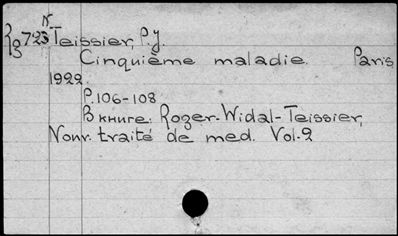 N
Rg723 Teissier, P.J.
Cinquième maladie. Paris
1922
P.106-108
В книге: Roger-Widal-Teissier,
Nouv. traité de med. Vol-2